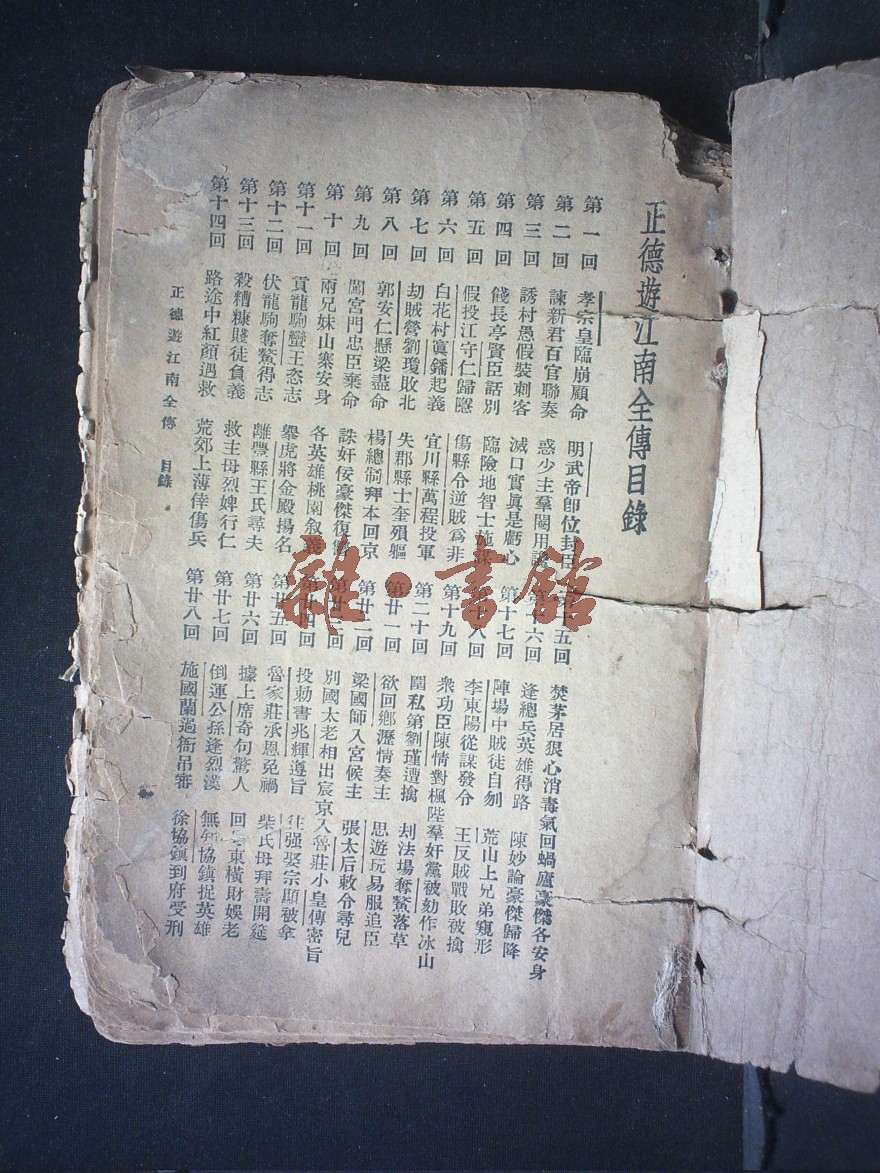 正德遊江南全傳目錄
第一回 孝宗皇臨崩顧命 明武帝卽位封臣
第二回 諫新君百官聯奏 惑少主羣閹用讒
第三回 誘村愚假裝刺客 滅口實眞是虧心
第四回 餞長亭賢臣話別 臨險地智士施謀
第五回 假投江守仁歸隱 傷縣令逆賊爲非
第六回 白花村寘鐇起義 宜川縣萬程投軍
第七回 劫賊營劉瓊敗北 失郡縣士奎殞軀
第八回 郭安仁懸梁盡命 楊總制拜本回京
第九回 鬧宮門忠臣棄命 誅奸佞豪傑復讐
第十回 兩兄妹山寨安身 各英雄桃園叙義
第十一回 貢龍駒蠻王恣志 舉虎將金殿揚名
第十二回 伏龍駒奪鰲得志 離豐縣王氏尋夫
第十三回 殺糟糠賤徒負義 救主母烈婢行仁
第十四回 路途中紅顏遇救 荒郊上薄倖傷兵
第十五回 焚茅居狠心消毒氣 回蝸廬豪傑各安身
第十六回 逢總兵英雄得路 陳妙論豪傑歸降
第十七回 陣場中賊徒自刎 荒山上兄弟窺形
第十八回 李東陽從謀發令 王反賊戰敗被擒
第十九回 衆功臣陳情對楓陛 羣奸黨被劾作冰山
第二十回 圍私第劉瑾遭擒 刦法場奪鰲落草
第廿一回 欲回鄉瀝情奏主 思遊玩易服追臣
第廿二回 梁國師入宮候主 張太后敕令尋兒
第廿三回 別國太老相出宸京 入魯莊小皇傳密旨
第廿四回 投勅書兆輝遵旨 往强娶宗顯被拿
第廿五回 魯家莊承恩免禍 柴氏母拜壽開筵
第廿六回 據上席奇句驚人 回東橫財娛老
第廿七回 倒運公孫逢烈漢 無知協鎮捉英雄
第廿八回 施國蘭過衙吊審 徐協鎮到府受刑
正德遊江南全傳 目錄
雜·書館